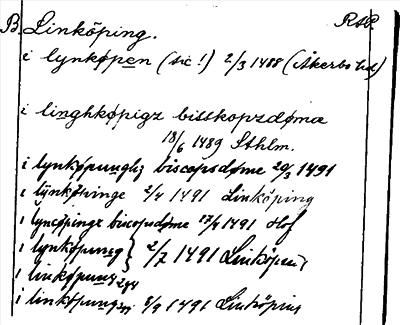 B Linköping. RAP.
i lynkøpen (sic!) 2/3 1488 (Åkerbo hd)
i linghkøpigz biltskopzdøme
18/6 1489 Sthlm.
i lynkøpunghz biscopsdøme 20/3 1491
i lÿnkøpinge 2/4 1491 Linköping
i lyncøpingx biscopsdøme 17/4 1491 Hof
i lynkøpungz } 2/7 1491 Linköping
i linkøpungz
i linkøpung 8/9 1491 Linköping